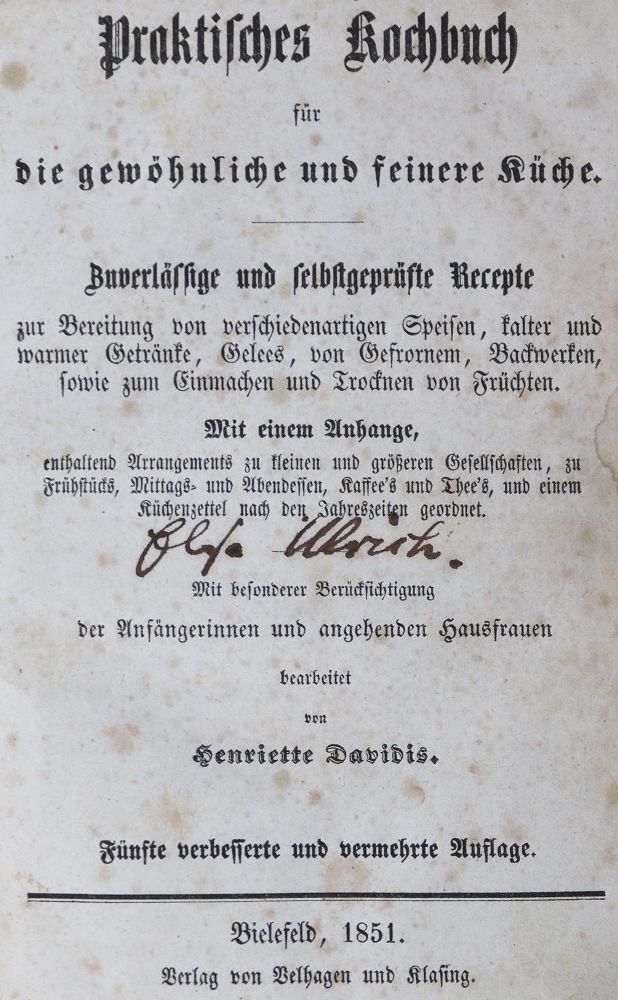 Praktisches Kochbuch
für
die gewöhnliche und feinere Küche.
Zuverlässige und selbstgeprüfte Recepte
zur Bereitung von verschiedenartigen Speisen, kalter und
warmer Getränke, Gelees, von Gefrornem, Backwerken,
sowie zum Einmachen und Trocknen von Früchten.
Mit einem Anhange,
enthaltend Arrangements zu kleinen und größeren Gesellschaften, zu
Frühstücks, Mittags- und Abendessen, Kaffee's und Thee's, und einem
Küchenzettel nach den Jahreszeiten geordnet.
Ulrich.
Mit besonderer Berücksichtigung
der Anfängerinnen und angehenden Hausfrauen
bearbeitet
von
Henriette Davidis.
Fünfte verbesserte und vermehrte Auflage.
Bielefeld, 1851.
Verlag von Velhagen und Klasing.